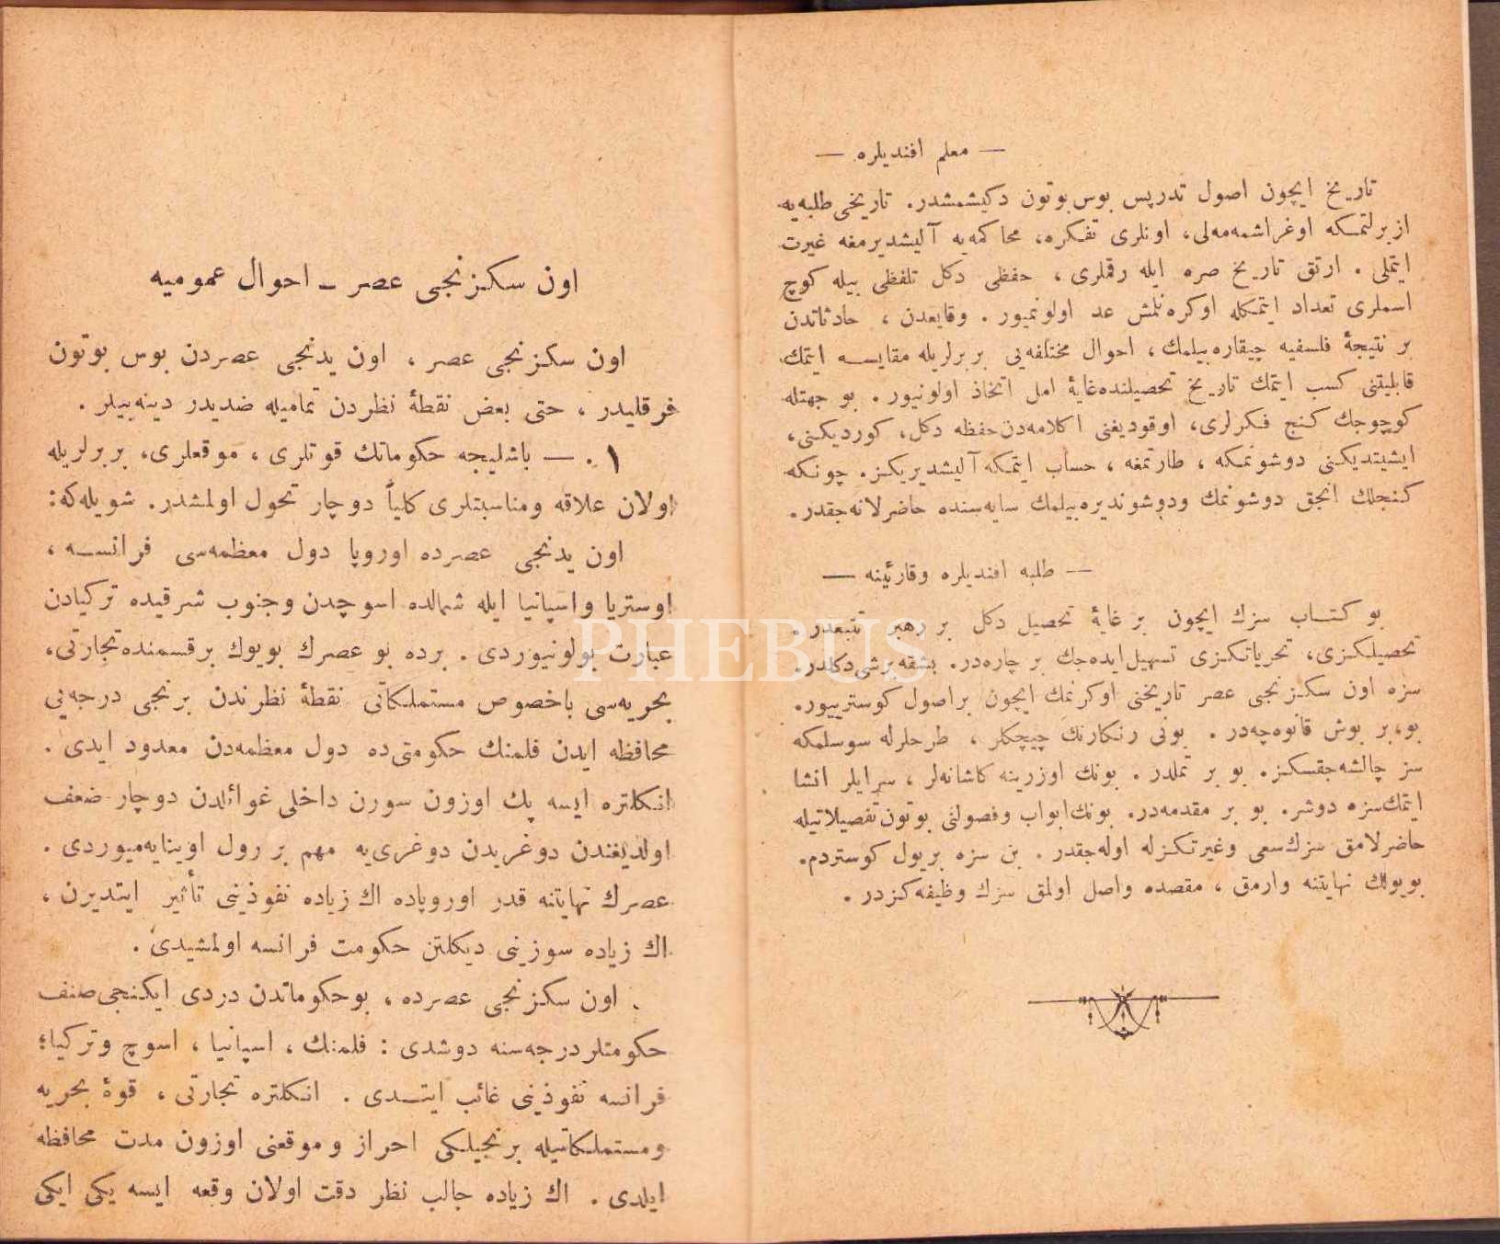 — معلم افندیلره —
تاریخ ایچون اصول تدریس بوس‌بوتون دکیشمشدر. تاریخی طلبه‌یه
ازبرلتمکه اوغراشمه‌ملی، اونلری تفکره، محاکمه‌یه آلیشدیرمغه غیرت
ایتملی . ارتق تاریخ صره ایله رقملری ، حفظی دکل تلفظی بیله کوچ
اسملری تعداد ایتمکله اوکره‌نلمش عد اولونمیور . وقایعدن ، حادثاتدن
بر نتیجهٔ فلسفیه چیقاره‌بیلمك ، احوال مختلفه‌یی بربرلریله مقایســه ایتمك
قابلیتنی کسب ایتمك تاریخ تحصیلنده‌غایهٔ امل اتخاذ اولونیور . بو جهتله
کوچوجك کنج فکرلری، اوقودیغنی اکلامه‌دن‌حفظه دکل، کوردیکنی،
ایشیتدیکنی دوشونمکه ، طارتمغه ، حساب ایتمکه آلیشدیریکز. چونکه
کنجلك انجق دوشونمك ودوشوندیره‌بیلمك سایه‌سنده حاضرلانه‌جقدر.
— طلبه افندیلره وقارئینه —
بو کتــاب سزك ایچون بر غایهٔ تحصیل دکل بر رهبر تتبعدر.
تحصیلکزی، تحریاتکزی تسهیل‌ایده‌جك بر چاره‌در. بشقه‌برشی‌دکلدر.
سزه اون سکزنجی عصر تاریخنی اوکرنمك ایچون براصول کوستریيور.
بو،بر بوش قانوه‌چه‌در . بونی رنکارنك چیچکلر ، طرحلرله سوسلمکه
سز چالشه‌جقسکز. بو بر تملدر . بونك اوزرینه کاشانه‌لر ، سرایلر انشا
ایتمك‌سزه دوشر. بو بر مقدمه‌در. بونك‌ابواب وفصولنی بوتون‌تفصیلاتیله
حاضرلامق سزك‌سعی وغیرتکزله اوله‌جقدر . بن سزه بریول کوستردم.
بویولك نهایتنه وارمق ، مقصده واصل اولمق سزك وظیفه‌کزدر .
اون سکزنجی عصر ـ احوال عمومیه
اون سکزنجی عصر ، اون یدنجی عصردن بوس بوتون
فرقلیدر ، حتی بعض نقطهٔ نظردن تمامیله ضدیدر دینه‌بیلر .
۱ . — باشلیجه حکوماتك قوتلری ، موقعلری، بربرلریله
اولان علاقه ومناسبتلری کلیاً دوچار تحول اولمشدر. شویله‌که:
اون یدنجی عصرده اوروپا دول معظمه‌سی فرانســه ،
اوستریا واسپانیا ایله شمالده اسوچدن وجنوب شرقیده ترکیادن
عبارت بولونیوردی . برده بو عصرك بویوك برقسمنده‌تجارتی،
بحریه‌سی باخصوص مستملکاتی نقطهٔ نظرندن برنجی درجه‌یی
محافظه ایدن فلمنك حکومتی‌ده دول معظمه‌دن معدود ایدی .
انکلتره ایسه پك اوزون سورن داخلی غوائلدن دوچار ضعف
اولدیغندن دوغریدن دوغری‌یه مهم بر رول اوینایه‌میوردی .
عصرك نهایتنه قدر اوروپاده اك زیاده نفوذینی تأثیر ایتدیرن ،
اك زیاده سوزینی دیکلتن حکومت فرانسه اولمشیدی .
اون سکزنجی عصرده ، بوحکوماتدن دردی ایکنجی‌صنف
حکومتلردرجه‌سنه دوشدی : فلمنك ، اسپانیا ، اسوچ وترکیا؛
فرانسه نفوذینی غائب ایتــدی . انکلتره تجارتی ، قوهٔ بحریه
ومستملکاتیله برنجیلکی احراز وموقعنی اوزون مدت محافظه
ایلدی . اك زیاده جالب نظر دقت اولان وقعه ایسه یکی ایکی
PHEBUS